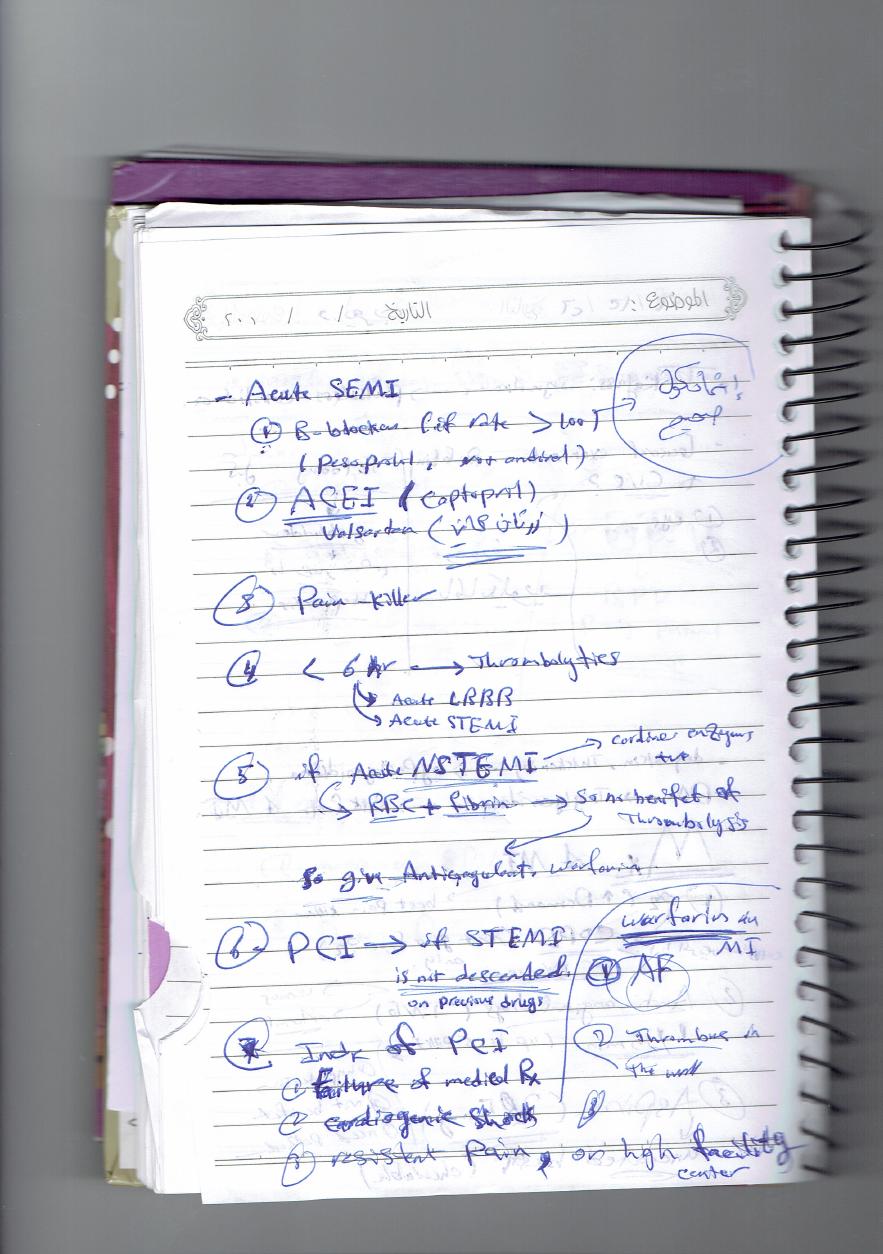 الموضوع: التاريخ / / ٢٠٠
- Acute SEMI
① B-blocker (if rate > 100) →
② ACEI (captopril)
Valsartan ( )
③ Pain-killer
④ < 6 hr → Thrombolytics
↳ Acute LBBB
↳ Acute STEMI
⑤ if Acute NSTEMI → cardiac enzymes +ve
↳ RBC + fibrin → So no benifet of
Thrombolysis
So give Anticoagulant, warfarin
⑥ PCI → if STEMI
is not descended.
on previous drugs
warfarin in
MI
① AF
② Thrombus in
the wall
③
⑦ Indx of PCI
① Failure of medical Rx
② cardiogenic shock
③ resistent pain, on high facility
center